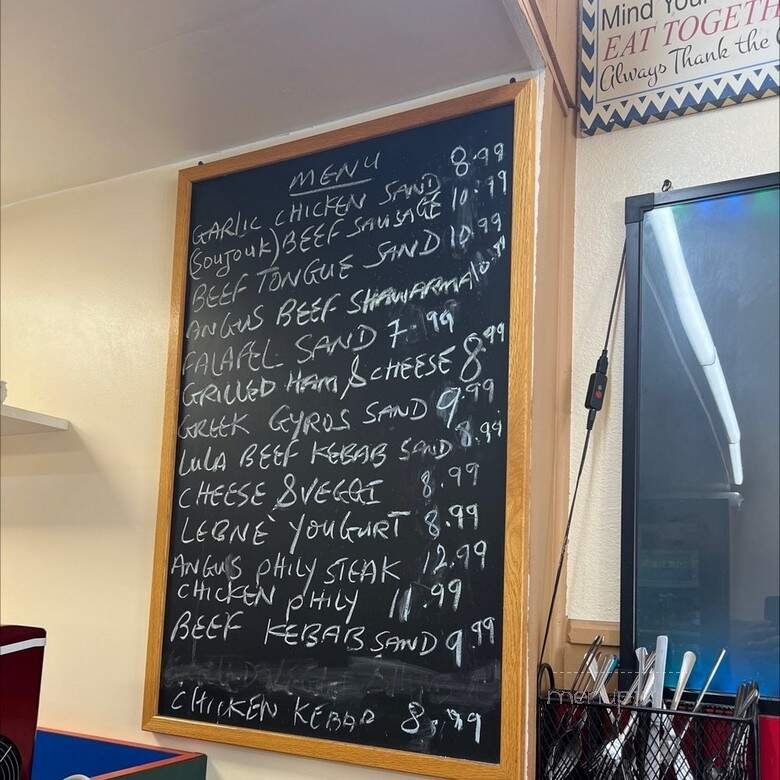 Mind You
EAT TOGETH
Always Thank the
MENU
GARLIC CHICKEN SAND 8.99
(SOUJOUK) BEEF SAUSAGE 10.99
BEEF TONGUE SAND 10.99
ANGUS BEEF SHAWARMA 10.99
FALAFEL SAND 7.99
GRILLED HAM & CHEESE 8.99
GREEK GYROS SAND 9.99
LULA BEEF KEBAB SAND 8.99
CHEESE & VEGGI 8.99
LEBNE YOUGURT 8.99
ANGUS PHILY STEAK 12.99
CHICKEN PHILY 11.99
BEEF KEBAB SAND 9.99
CHICKEN KEBAB 8.99